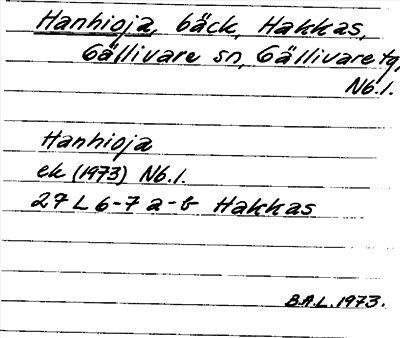 Hanhioja, bäck, Hakkas,
Gällivare sn, Gällivare tg,
Nb.l.
Hanhioja
ek (1973) Nb.l.
27 L 6-7 a-b Hakkas
B.A.L. 1973.